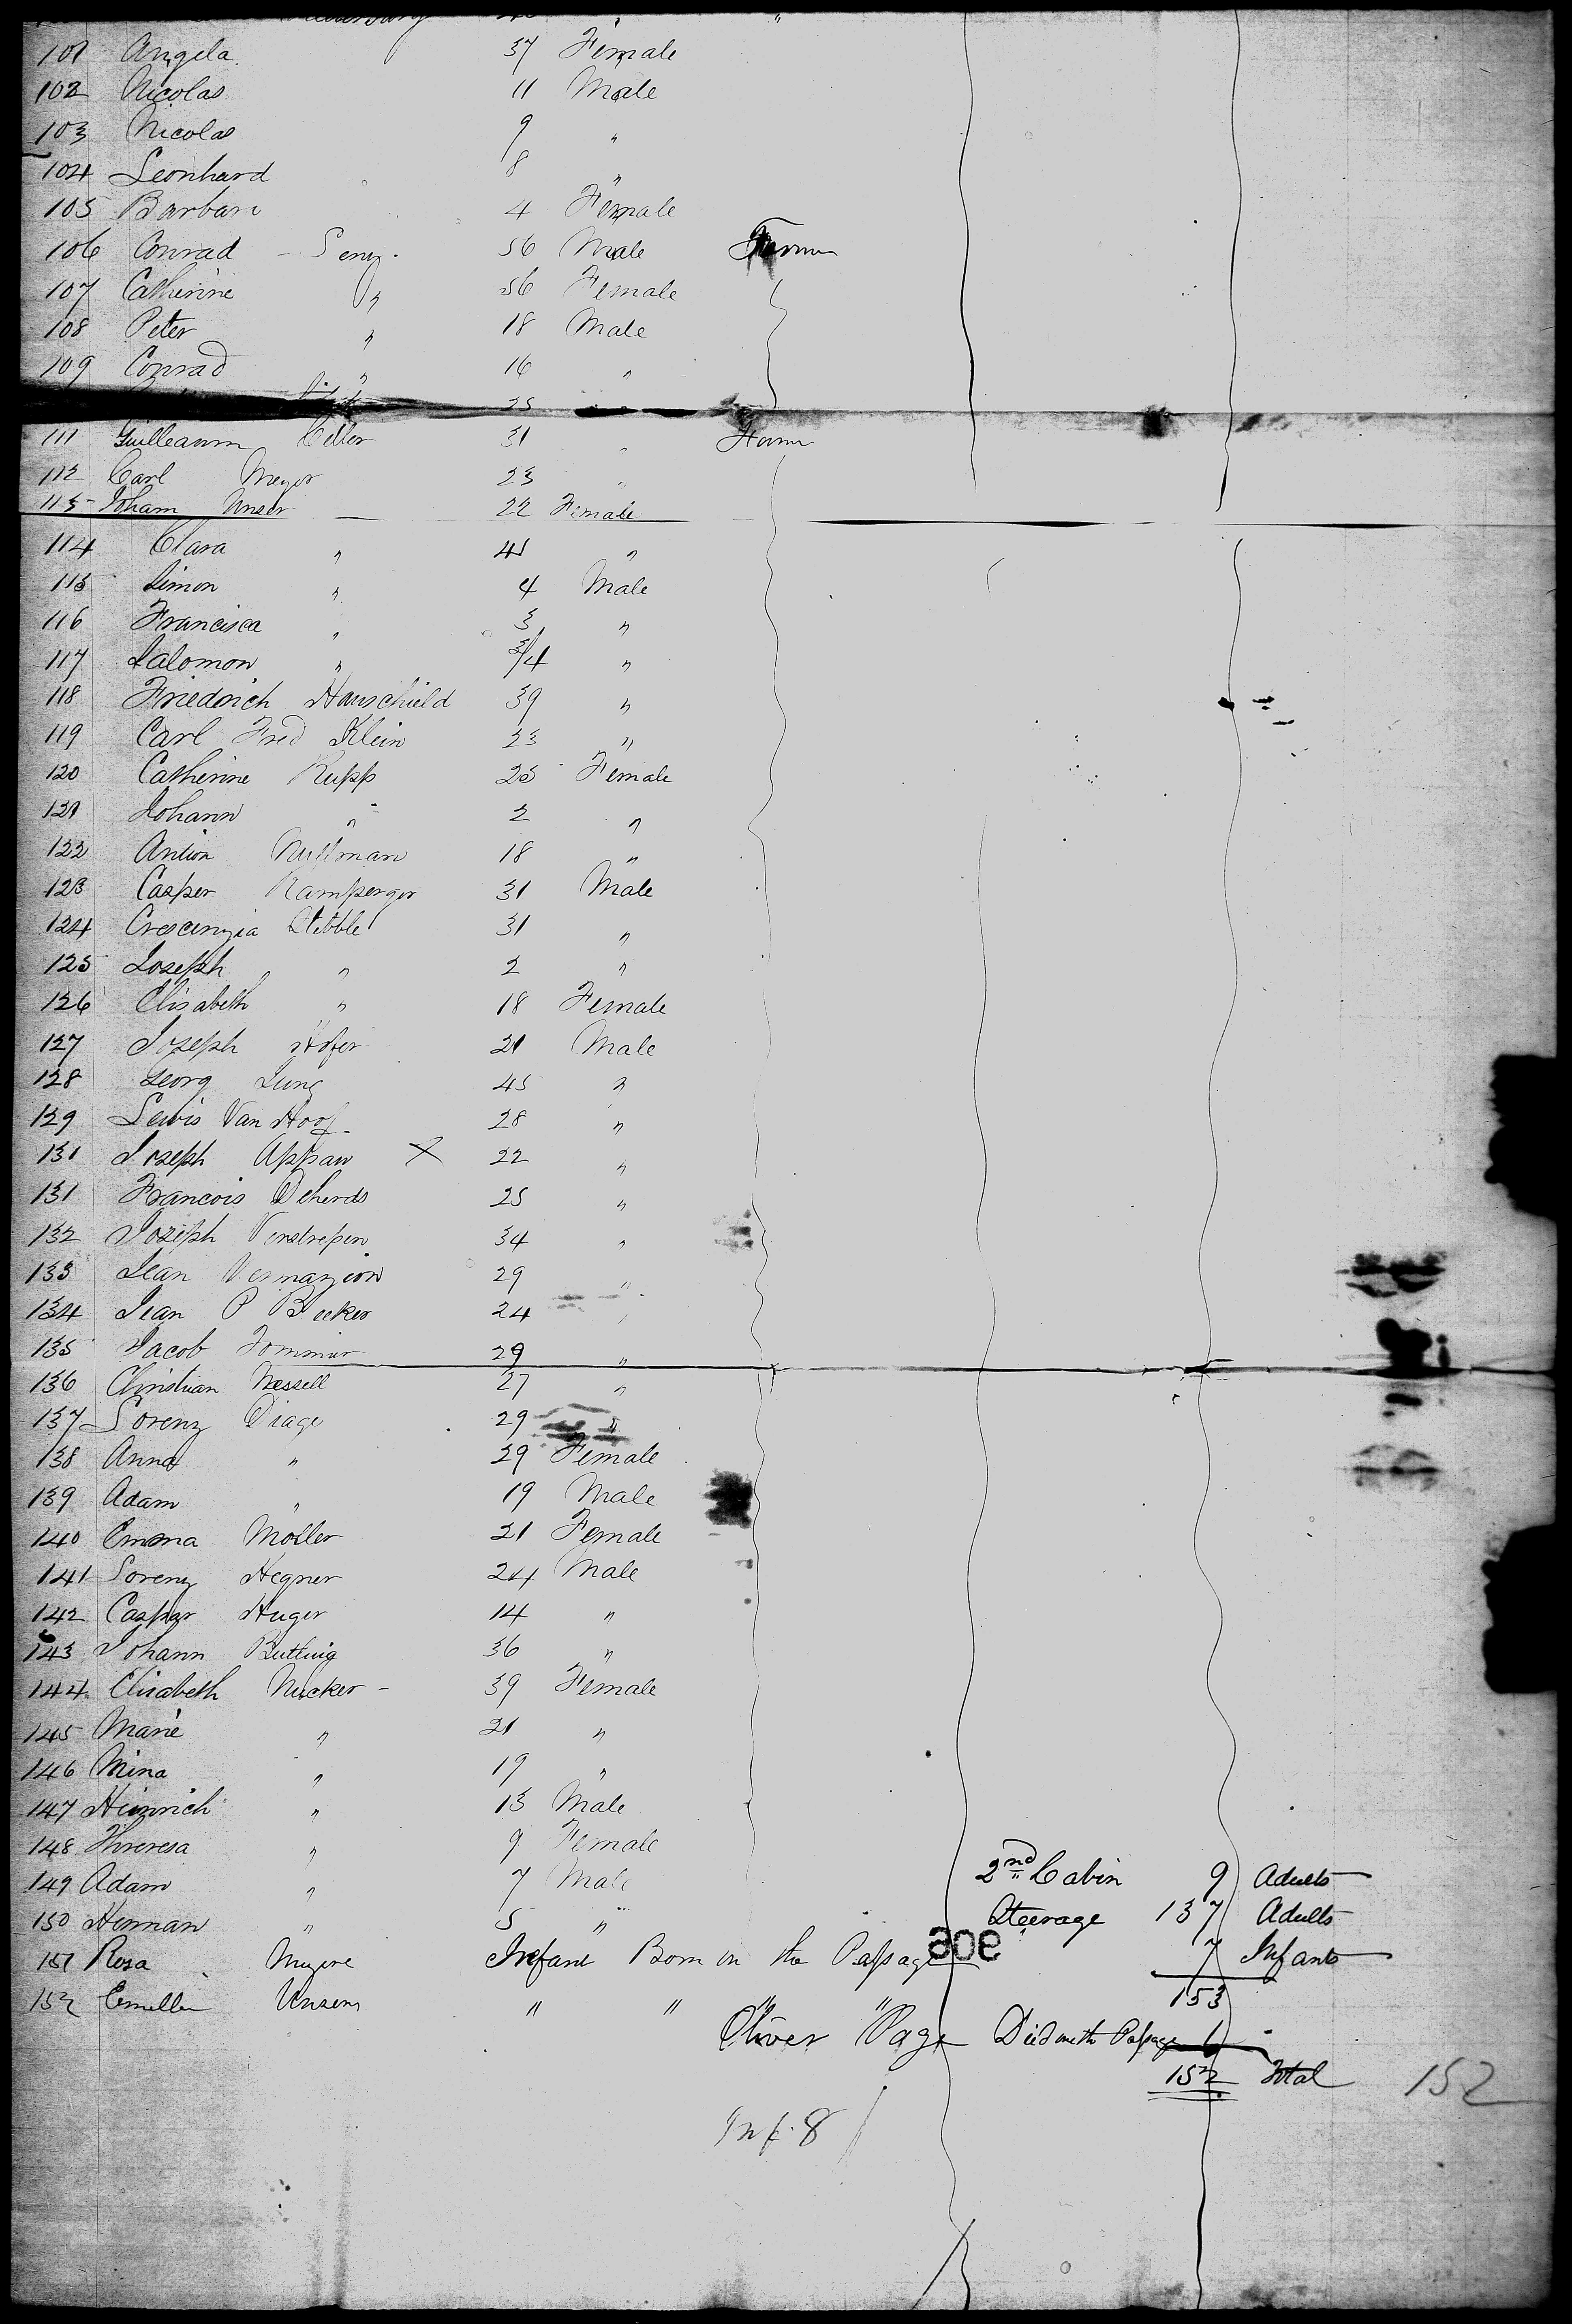 101 Angela 37 Female
102 Nicolas 11 Male
103 Nicolas 9 "
104 Leonhard 8 "
105 Barbara 4 Female
106 Conrad - Senz. 56 Male Farmer
107 Catherine " 56 Female
108 Peter " 18 Male
109 Conrad " 16 "
25
111 Guilleaum Celler 31 " Farm
112 Carl Meyer 23 "
113 Joham Unser 22 Female
114 Clara " 45 "
115 Simon " 4 Male
116 Francisca " 3 "
117 Salomon " 3/4 "
118 Friedrich Hauschield 39 "
119 Carl Fred Klein 23 "
120 Catherine Rupp 25 Female
121 Johann " 2 "
122 Antion Nullman 18 "
123 Casper Ramperger 31 Male
124 Crescenzia Stebble 31 "
125 Joseph " 2 "
126 Elisabeth " 18 Female
127 Joseph Hofer 21 Male
128 Georg Jung 45 "
129 Lewis Van Hoof 28 "
131 Joseph Appsaw X 22 "
131 Francois Deherds 25 "
132 Joseph Verstrepen 34 "
133 Jean Vermarzion 29 "
134 Jean P Becker 24 "
135 Jacob Tommier 29 "
136 Christian Nessell 27 "
137 Lorenz Diage 29 "
138 Anna " 29 Female
139 Adam " 19 Male
140 Emma Moller 21 Female
141 Lorenz Hegner 24 Male
142 Caspar Huger 14 "
143 Johann Butling 36 "
144 Elisabeth Nucker - 39 Female
145 Marie " 21 "
146 Mina " 19 "
147 Heinrich " 13 Male
148 Threresa " 9 Female
149 Adam " 7 Male 2nd Cabin 9 Adults
150 Herman " 5 " Steerage 137 Adults
151 Rosa Meyere Infant Born on the Passage 906 7 Infants
152 Emellin Unsern " " " " 153
Oliver Page Died on the Passage 1
152 Total 152
Inf. 8